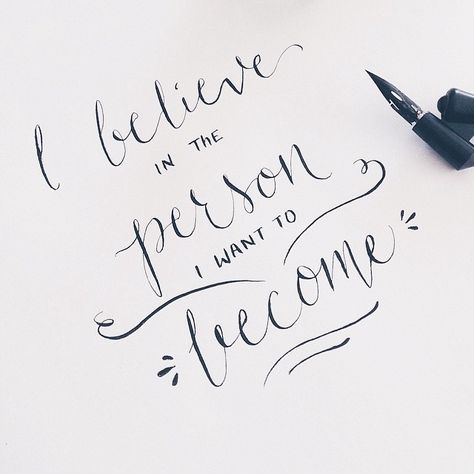 I believe
IN THE
person
I WANT TO
become